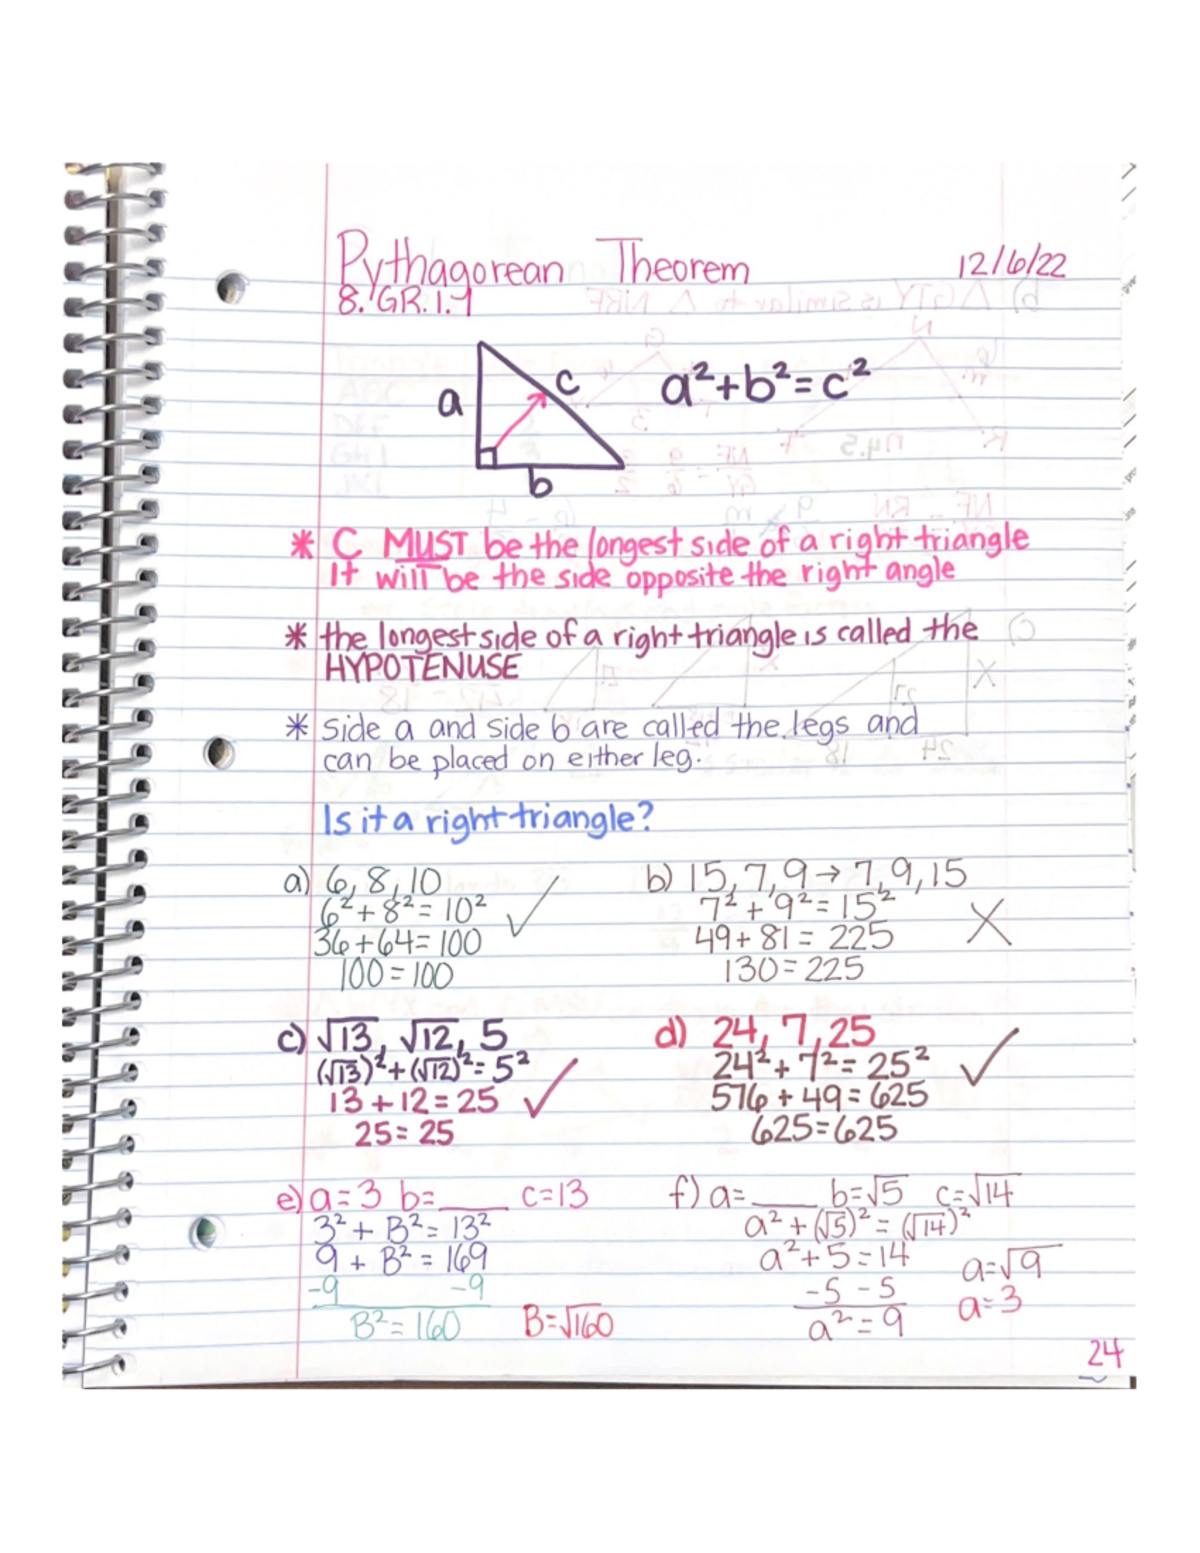 Pythagorean Theorem 12/6/22
8.GR.1.1
a c a²+b²=c²
b
* C MUST be the longest side of a right triangle
It will be the side opposite the right angle
* the longest side of a right triangle is called the
HYPOTENUSE
* side a and side b are called the legs and
can be placed on either leg.
Is it a right triangle?
a) 6, 8, 10
6²+8²=10² ✓
36+64=100
100=100
b) 15, 7, 9 → 7, 9, 15
7²+9²=15²
49+81=225 X
130=225
c) √13, √12, 5
(√13)²+(√12)²=5²
13+12=25 ✓
25=25
d) 24, 7, 25
24²+7²=25² ✓
576+49=625
625=625
e) a=3 b=____ c=13
3²+B²=13²
9+B²=169
-9 -9
B²=160 B=√160
f) a=____ b=√5 c=√14
a²+(√5)²=(√14)²
a²+5=14 a=√9
-5 -5 a=3
a²=9
24